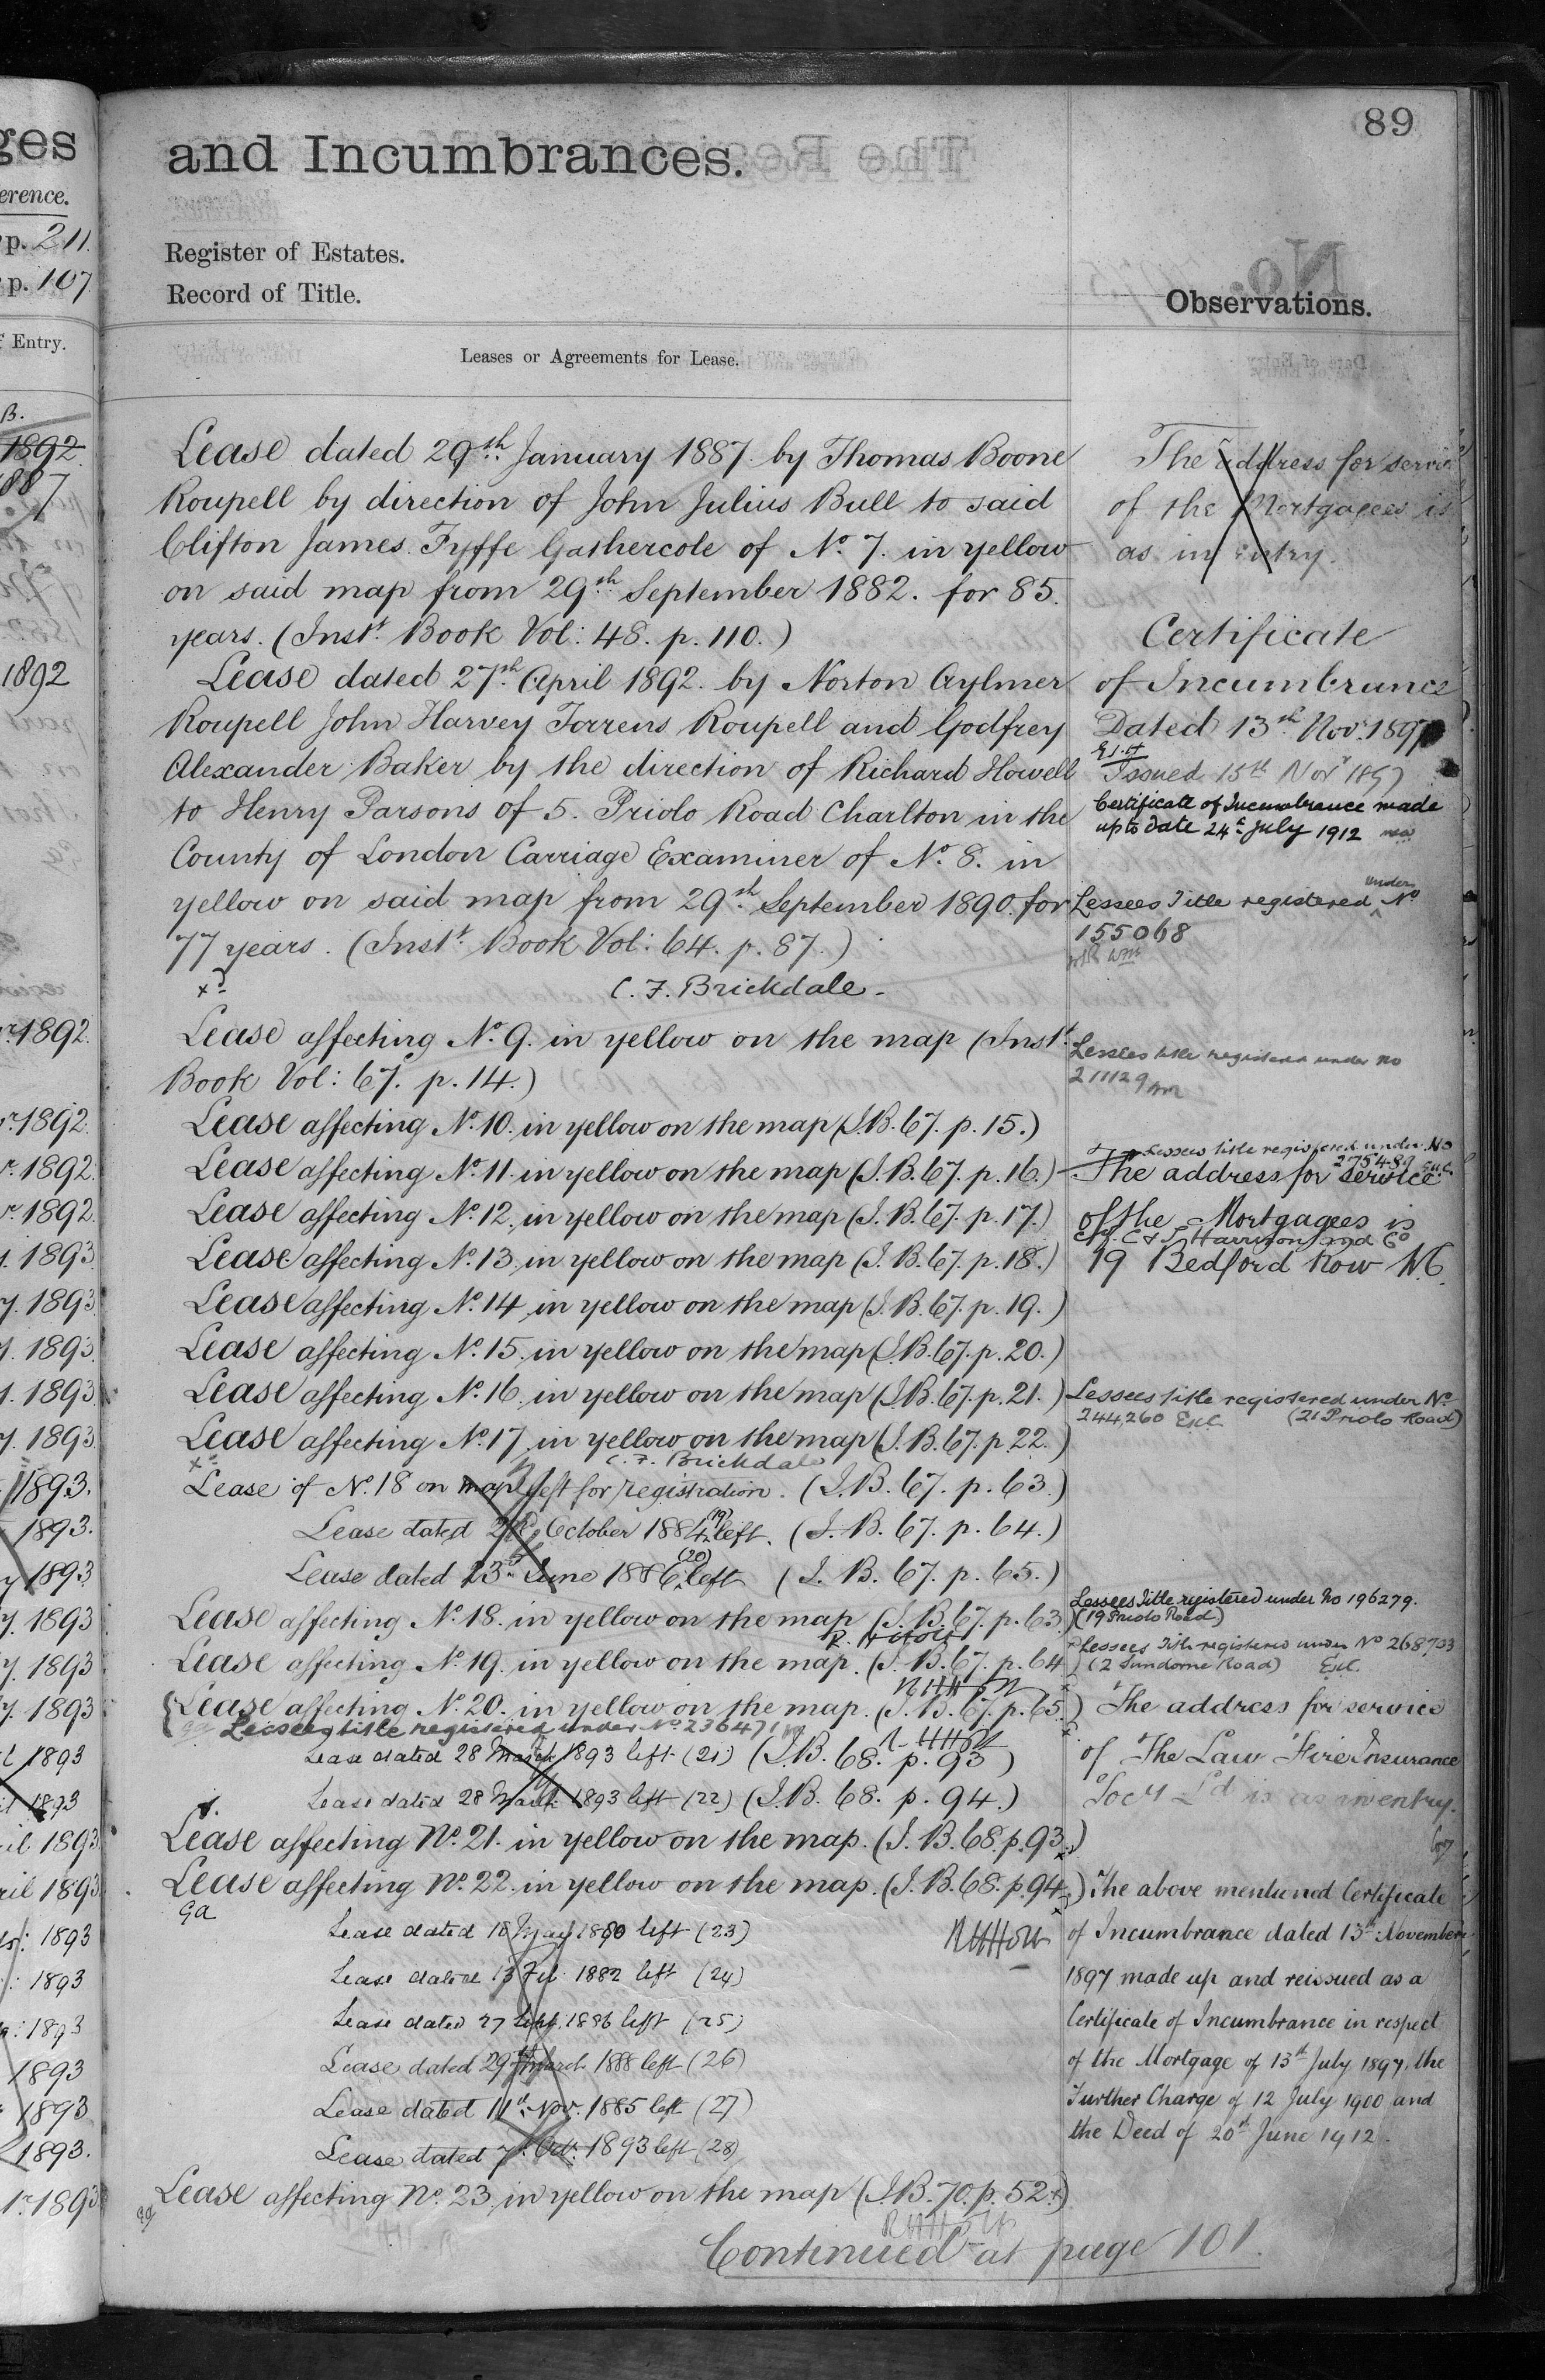 ges
erence.
p. 211.
p. 107.
f Entry.
B.
1892.
1887
1892
1892.
1892.
1892.
1892.
1893
1893.
1893.
1893
1893.
1893.
1893.
1893
1893
1893
1893
1893
1893
il 1893
ril 1893
1893
1893
1893
1893
1893
1893.
1893
89
and Incumbrances.
Register of Estates.
Record of Title.
Observations.
Leases or Agreements for Lease.
Lease dated 29th January 1887. by Thomas Boone
Roupell by direction of John Julius Bull to said
Clifton James Fyffe Gathercole of No. 7. in yellow
on said map from 29th September 1882. for 85.
years. (Inst. Book Vol: 48. p. 110.)
Lease dated 27th April 1892. by Norton Aylmer
Roupell John Harvey Torrens Roupell and Godfrey
Alexander Baker by the direction of Richard Howell
to Henry Parsons of 5. Priolo Road Charlton in the
County of London Carriage Examiner of No. 8. in
yellow on said map from 29th September 1890. for
77 years. (Inst. Book Vol: 64. p. 87.)
C. F. Brickdale
Lease affecting No. 9. in yellow on the map (Inst.
Book Vol: 67. p. 14.)
Lease affecting No. 10. in yellow on the map (I.B. 67. p. 15.)
Lease affecting No. 11. in yellow on the map (I.B. 67. p. 16.)
Lease affecting No. 12. in yellow on the map (I.B. 67. p. 17.)
Lease affecting No. 13. in yellow on the map (I.B. 67. p. 18.)
Lease affecting No. 14. in yellow on the map (I.B. 67. p. 19.)
Lease affecting No. 15. in yellow on the map (I.B. 67. p. 20.)
Lease affecting No. 16. in yellow on the map (I.B. 67. p. 21.)
Lease affecting No. 17. in yellow on the map (I.B. 67. p. 22.)
C. F. Brickdale
Lease of No. 18 on map left for registration. (I.B. 67. p. 63.)
Lease dated October 1884 (19) left. (I.B. 67. p. 64.)
Lease dated 23rd June 1886 (20) left (I.B. 67. p. 65.)
Lease affecting No. 18. in yellow on the map (I.B. 67. p. 63.)
Lease affecting No. 19. in yellow on the map. (I.B. 67. p. 64.)
Lease affecting No. 20. in yellow on the map. (I.B. 67. p. 65.)
Lessees title registered under No. 236471
Lease dated 28 March 1893 left (21) (I.B. 68. p. 93)
Lease dated 28 March 1893 left (22) (I.B. 68. p. 94.)
Lease affecting No. 21. in yellow on the map. (I.B. 68. p. 93.)
Lease affecting No. 22. in yellow on the map. (I.B. 68. p. 94.)
Lease dated 18 May 1880 left (23)
RHHolt
Lease dated 13 Feb 1882 left (24)
Lease dated 27 Sept. 1886 left (25)
Lease dated 29th March 1888 left (26)
Lease dated 11th Nov. 1885 left (27)
Lease dated 7th Oct. 1893 left (28)
Lease affecting No. 23. in yellow on the map (I.B. 70. p. 52.)
RHHolt
Continued at page 101.
The address for service
of the Mortgagees is
as in entry.
Certificate
of Incumbrance
Dated 13th Nov. 1897
Issued 15th Nov 1897
Certificate of Incumbrance made
up to date 24th July 1912
Lessees Title registered under No
155068
Lessees title registered under No
211129
Lessees title registered under No
275489
The address for service
of the Mortgagees is
Harrison and Co
19 Bedford Row W.C.
Lessees title registered under No.
244260 (21 Priolo Road)
Lessees Title registered under No 196279.
(19 Priolo Road)
Lessees Title registered under No 268703
(2 Sundorne Road)
The address for service
of The Law Fire Insurance
Socy Ld is as in entry.
The above mentioned Certificate
of Incumbrance dated 13th November
1897 made up and reissued as a
Certificate of Incumbrance in respect
of the Mortgage of 13th July 1897, the
Further Charge of 12 July 1900 and
the Deed of 20th June 1912.